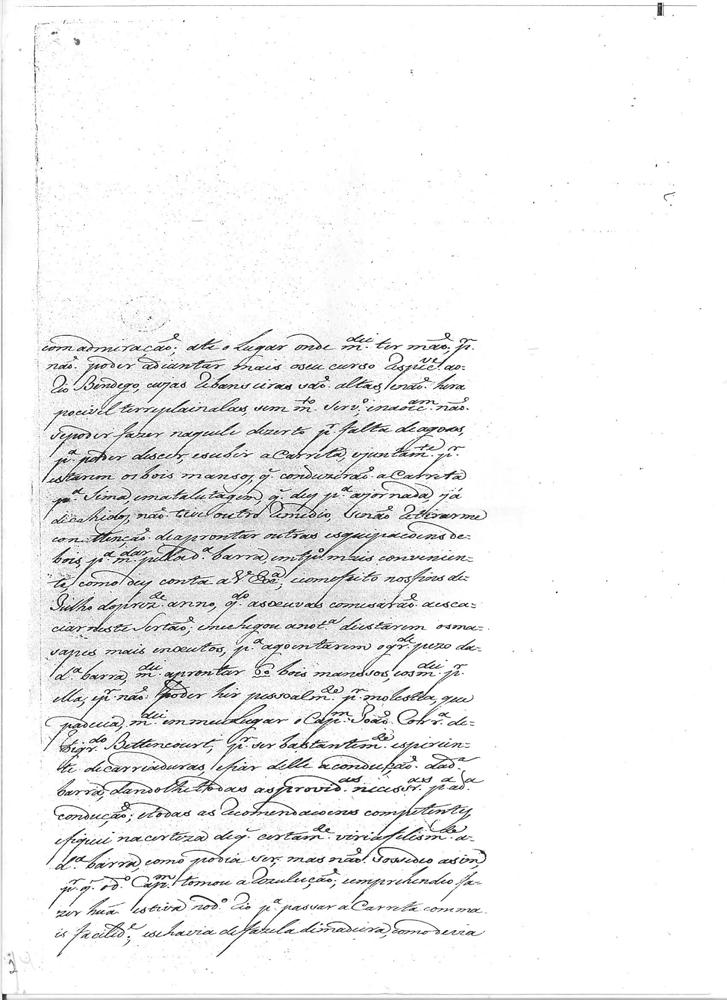 com admiração, ate o Lugar onde mdei ter mão, pr.
não poder adiantar mais o seu curso Respve ao
Rio Bendego, cujas Rebanseiras são altas, e não hera
pocivel terrplainalas, sem mto Servo,
se poder fazer naquele dezerto pr. falta de agoas,
pa poder descer, e subir a Carreta, e juntamte pr.
estarem os bois mansos, q. conduzirão a Carreta
pa Sima, e matalutagem, q. dey pa a jornada, já
decahidos, não tive outro Remedio, senão Retirarme
con tenção de aprontar outras esquipaçoens de
bois, pa mdar pella da barra, em tpo mais convenien-
te, como dey conta a Va Exa; e com efeito nos fins de
Julho do preze anno, qdo as cuvas comesarão a esca-
ciar neste Sertão, e me chegou a nota de estarem os ma-
sapes mais inxutos, pa agoentarem o gre pezo da
da barra, mdei aprontar 60 bois mansos, e os mdei pr.
ella, e pr. não poder hir pessoalme pr. molestia, que
padecia, mdei em meu lugar o Capm João Corra de
Figrdo Bettencourt, pr. ser bastanteme espirien-
te de carriaduras, e fiar delle a condução da da
barra, dandolhe todas as providas necesras pa a da
condução; e todas as Recomendacoens competentes,
e fiquei na certeza de q. certame viria felisme a
da barra, como podia ser, mas não Sosedeo asim
pr. q. o do Capm tomou a Rezulução, emprehendeo fa-
zer hũa estiva no do Rio pa passar a Carreta com ma
is facilide; e se havia de fazela de madeira, como devia